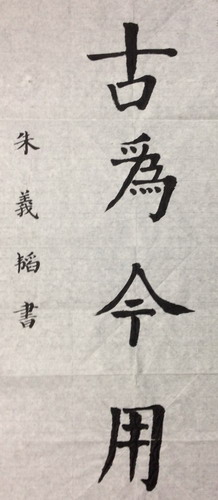 古為今用
朱義韜書